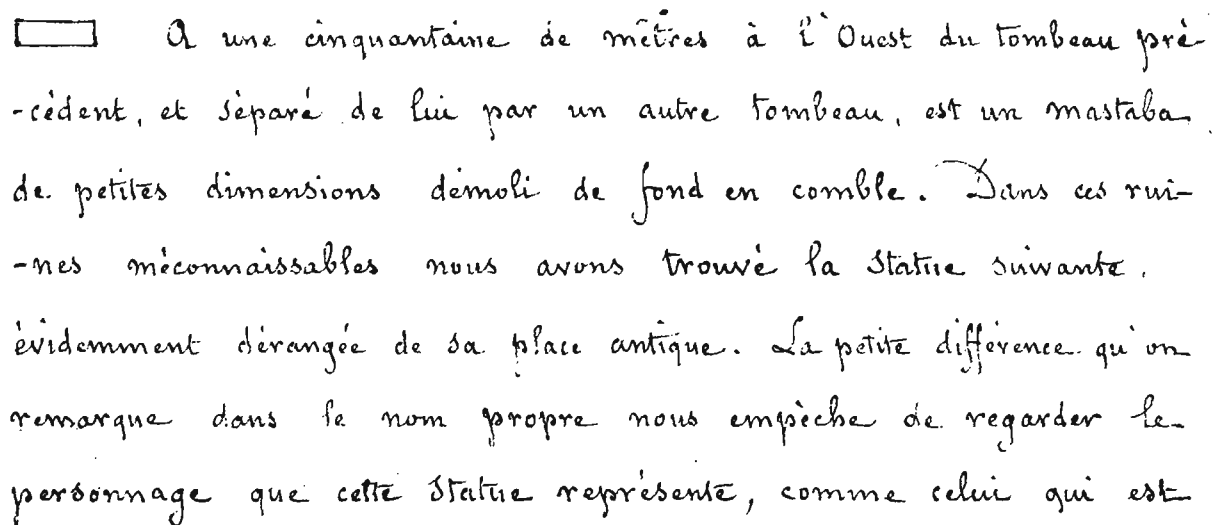 A une cinquantaine de mètres à l'Ouest du tombeau pré-
-cédent, et séparé de lui par un autre tombeau, est un mastaba
de petites dimensions démoli de fond en comble. Dans ces rui-
-nes méconnaissables nous avons trouvé la statue suivante,
évidemment dérangée de sa place antique. La petite différence qu'on
remarque dans le nom propre nous empêche de regarder le
personnage que cette statue représente, comme celui qui est